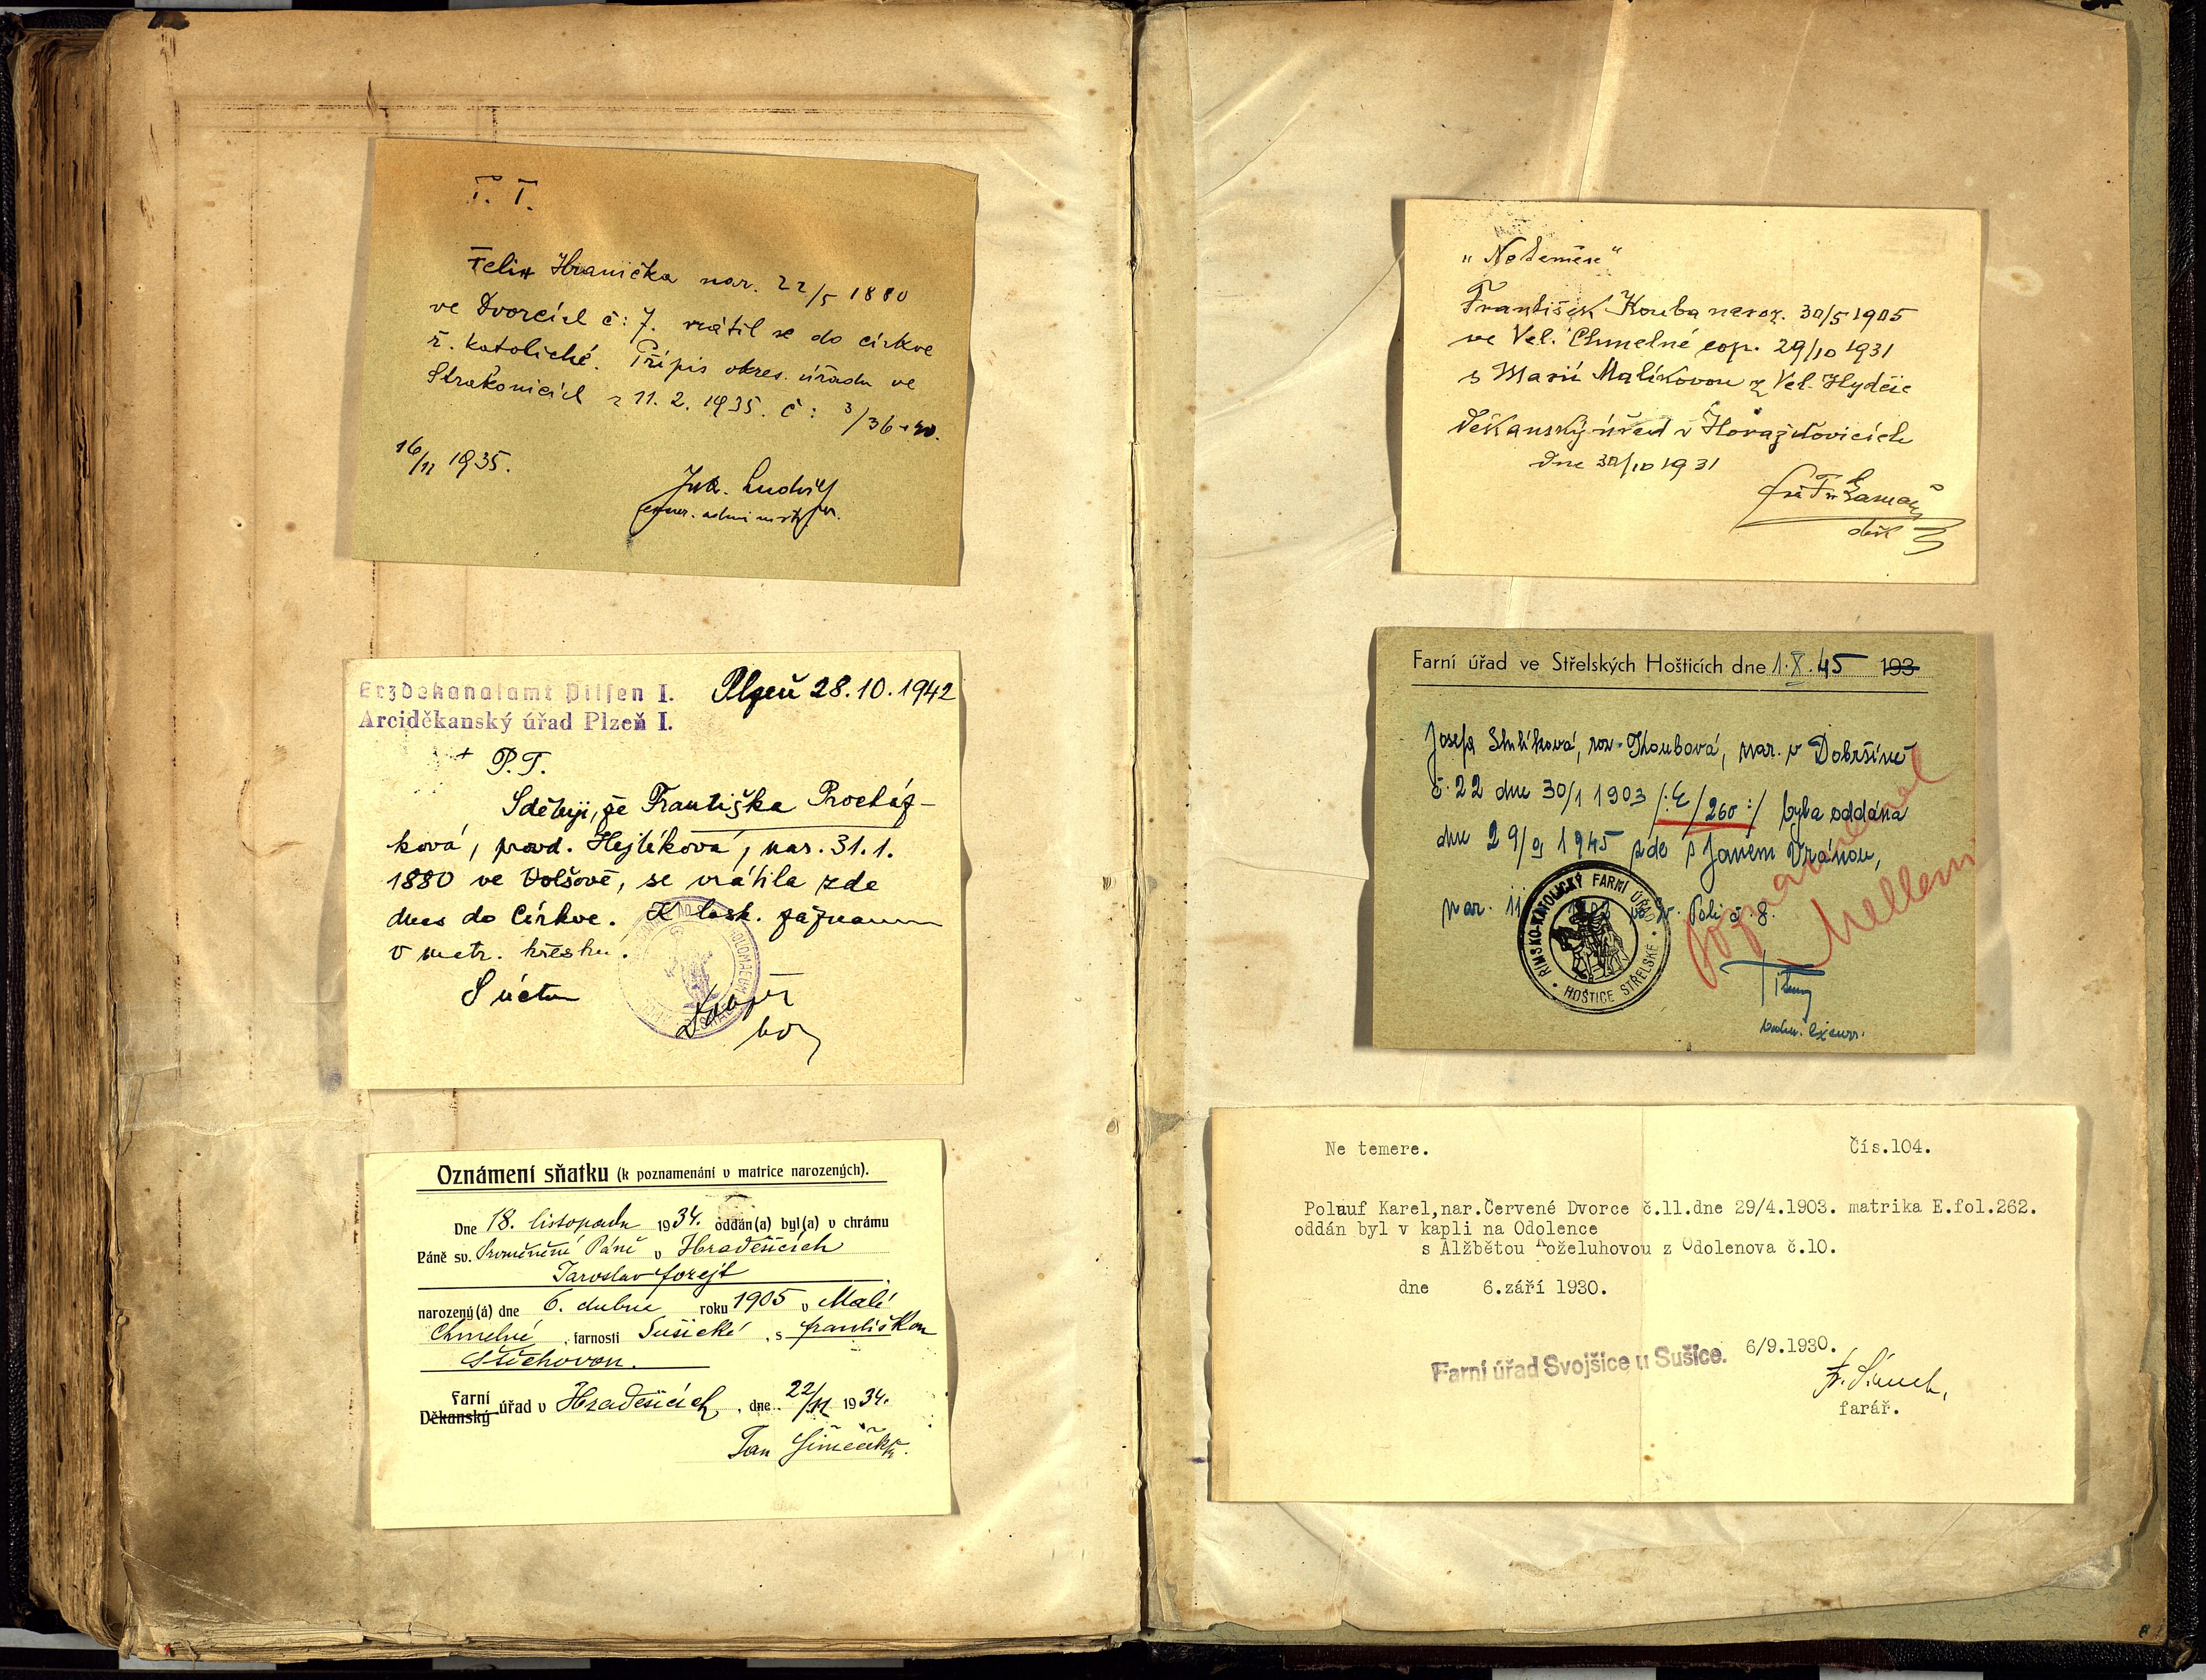 P. T.
Felix Hranička nar. 22/5 1880
ve Dvorcích č: 7. vrátil se do církve
ř. katolické. Přípis okres. úřadu ve
Strakonicích z 11. 2. 1935. č: 3/36
16/11 1935.
Jak. Ludvík
administr.
Erzdekanalamt Pilsen I.
Arciděkanský úřad Plzeň I.
Plzeň 28.10.1942
P.T.
Sděluji, že Františka Procház-
ková, provd. Hejlíková, nar. 31.1.
1880 ve Volšově, se vrátila zde
dnes do Církve. K lask. záznamu
v matr. křestní.
S úctou
Oznámení sňatku (k poznamenání v matrice narozených).
Dne 18. listopadu 1934. oddán(a) byl(a) v chrámu
Páně sv. Proměnění Páně v Hradešicích
Jaroslav Forejt
narozený(á) dne 6. dubna roku 1905 v Malé
Chmelné, farnosti Sušické, s Františkou
Štěchovou.
Farní
Děkanský úřad v Hradešicích, dne 22/11 1934.
Jan Šimeček
„Ne temere“
František Kouba naroz. 30/5 1905
ve Vel. Chmelné cop. 29/10 1931
s Marií Malíkovou z Vel. Hydčic
Děkanský úřad v Horažďovicích
dne 30/10 1931
děk
Farní úřad ve Střelských Hošticích dne 1.X.45 193
Josefa Koubová, nar. v Dobršíně
č. 22 dne 30/1 1903 /:E/260:/ byla oddána
dne 29/9 1945 zde s Janem Vránou,
nar. 11 č. 8.
ŘÍMSKO-KATOLICKÝ FARNÍ ÚŘAD
HOŠTICE STŘELSKÉ
excurr.
Ne temere. Čís.104.
Polauf Karel,nar.Červené Dvorce č.11.dne 29/4.1903. matrika E.fol.262.
oddán byl v kapli na Odolence
s Alžbětou Koželuhovou z Odolenova č.10.
dne 6.září 1930.
Farní úřad Svojšice u Sušice. 6/9.1930.
farář.